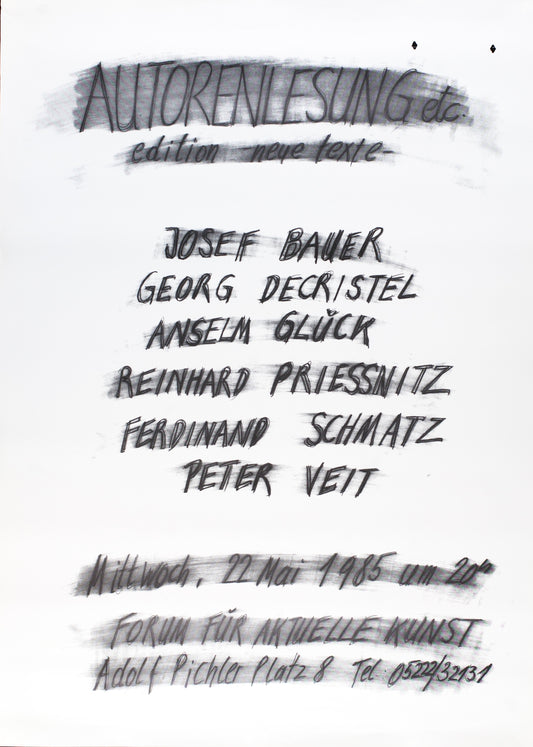 AUTORENLESUNG etc.
edition -neue texte-
JOSEF BAUER
GEORG DECRISTEL
ANSELM GLÜCK
REINHARD PRIESSNITZ
FERDINAND SCHMATZ
PETER VEIT
Mittwoch, 22 Mai 1985 um 20h
FORUM FÜR AKTUELLE KUNST
Adolf Pichler Platz 8 Tel. 05222/32131